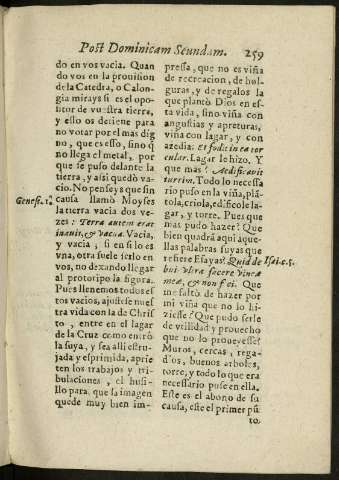 Post Dominicam Secundam. 259
do en vos vacia. Quan
do vos en la prouision
de la Catedra, o Calon-
gia mirays si es el opo-
sitor de vuestra tierra,
y esso os detiene para
no votar por el mas dig
no, que es esso, sino q̃
no llega el metal, por
que se puso delante la
tierra, y assi quedò va-
cio. No penseys que sin
Genes. 1.
causa llamò Moyses
la tierra vacia dos ve-
zes: Terra autem erat
inanis, & vacua. Vacia,
y vacia; si en si lo es
vna, otra suele serlo en
vos, no dexando llegar
al prototipo la figura.
Pues llenemos todos es
tos vacios, ajustese nues
tra vida con la de Chris
to, entre en el lagar
de la Cruz como entrò
la suya, y sea alli estru-
jada y esprimida, aprie
ten los trabajos y tri-
bulaciones, el husi-
llo para que la imagen
quede muy bien im-
pressa, que no es viña
de recreacion, de hol-
guras, y de regalos la
que plantò Dios en es-
ta vida, sino viña con
angustias y apreturas,
viña con lagar, y con
azedia. Et fodit in ea tor
cular. Lagar le hizo. Y
que mas? Aedificauit
turrim. Todo lo necessa
rio puso en la viña, plã-
tola, criola, edificole la-
gar, y torre. Pues que
mas pudo hazer? Que
bien quadra aqui aque-
llas palabras suyas que
refiere Esayas? Quid de
Isai. c. 5.
bui vltra facere vineæ
meæ, & non feci. Que
me faltò de hazer por
mi viña que no lo hi-
ziesse? Que pudo serle
de vtilidad y prouecho
que no lo proueyesse?
Muros, cercas, rega-
dios, buenos arboles,
torre, y todo lo que era
necessario puse en ella.
Este es el abono de su
causa, este el primer pũ
to.